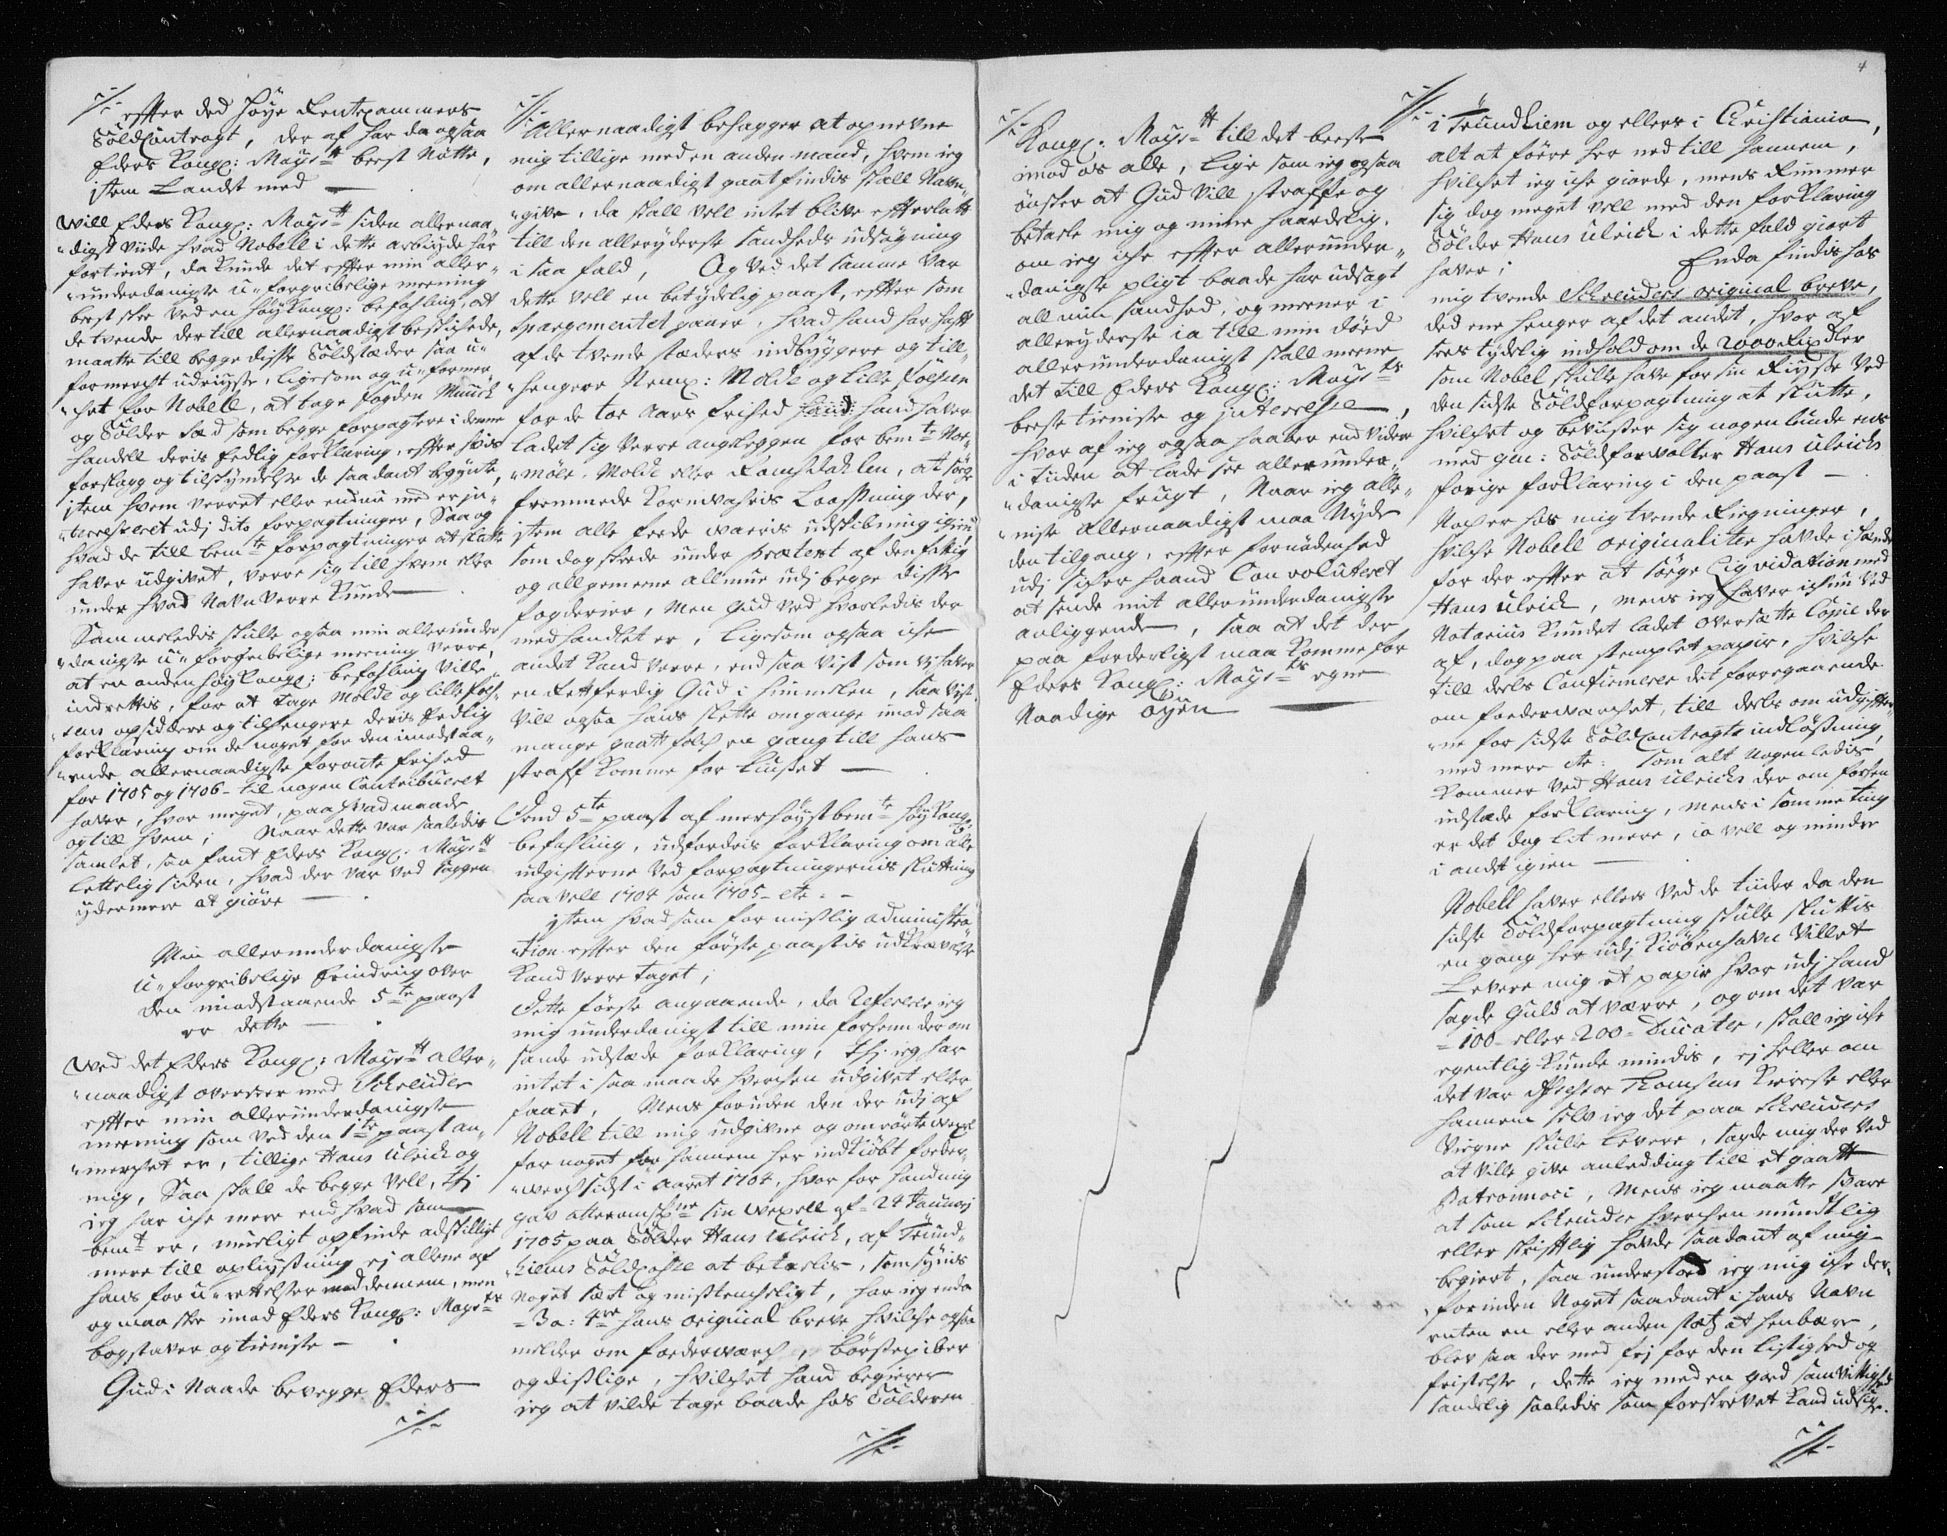 efter ded høye Rentecammers
Toldcontragt, der af har da ogsaa
Eders Kongl: Mayst beest Nøtte,
item Landet med —
Will Eders Kongl: Maystt siden allernaa-
digst viide hvad Nobell i dette arbiyde har
fortient, da kunde det efter min aller-
underdanigste u-forgribelige meening
best skee ved en høy Kongl: befahling, at
de tvende dertill allernaadigst beskikede,
maatte till begge disse Toldstæder saa u-
formerckt udreyse, ligesom og u-former-
cket for Nobell, at tage fogden Munck
og Tolder
handell deris Eedlig forklaring, efter hvis
forslag og tilskyndelse de saadant begynte,
item hvem verret eller endnu med er in-
teresseret udj dito forpagtninger, Saa og
hvad de till bemte forpagtninger at slutte
hafver udgivet, verre sig till hvem eller
under hvad Navn verre kunde —
Sammeledis skulle ogsaa min allerunder
danigste u-forgribelige meening verre,
at en anden høy Kongl: befahling ville
indrettis, for at tage Molde og lille Fos-
sens opsiddere og tilhengere deris Eedlig
forklaring om de noget for den imodstaa-
ende allernaadigste forente frihed
for 1705 og 1706 - til nogen Contribueret
hafver, hvor meget, paa hvad maade
og till hvem; Naar dette var saaledis
samlet, saa fant Eders Kongl: Maystt
lettelig siden, hvad der var ved saggen
ydermere at giøre —
Min allerunderdanigste
u-forgribelige Erindring over
den imodstaaende 5te paast
er dette —
Wed det Eders Kongl: Maystt aller-
naadigst overseer med Schreuder
efter min allerunderdanigste
meening som ved den 1te paast an-
mercket er, tillige Hans Ulrick og
mig, Saa skall de begge vell, thj
jeg har iche mere end hvad som
bemt er, mueligt opfinde adskilligt
mere till oplysning ej allene af
hans for u-rettelser med dennem, men
og maa skee imod Eders Kongl: Maysts
bogstaver og tieniste —
Gud i Naade bevegge Eders
Allernaadigst behagger at opnevne
mig tillige med en anden mand, hvem jeg
om allernaadigst gaat findis skall Navn-
give, da skall vell intet blive efterlatt
till den alleryderste Sandheds udsøgning
i saa fald, Og ved det samme var
dette vell en betydelig paast, efter som
Spargementet gaaer, hvad hand har haft
af de tvende stæders indbyggere og till-
hengere Neml: Molde og Lille Fossen
for de toe Aars frihed hand hafver
ladet sig verre angleggen for bemte Nor-
møle, Molde eller Romsdahlen, at sørge
fremmede Kornvahris Loessning der,
item alle feede vaeris udskibning igien,
som dog skede under Prætext af den fattig
og allgemeene allmue udj begge disse
fogderier, Men Gud ved hvorledis der
med handlet er, Ligesom ogsaa iche
andet kand verre, end saa vist som vj hafver
en Rettferdig Gud i himmelen, saa vist
vill ogsaa hans slette omgange imod saa
mange gaatt folch en gang till hans
straff komme for Liuset —
Dend 5te paast af merhøystbemte høy Kongl:
befahling, udfordris forklaring om alle
udgifterne ved forpagtningernis slutning
saa vell 1704 som 1705 - etc: -
item hvad som for mislig administra-
tion efter den første paastis udkrævelse
kand verre taget;
Dette første angaaende, da Refererer jeg
mig underdanigst till min forhenn der om
sande udstæde forklaring, thj jeg har
intet i saa maade hverchen udgivet eller
faaet, Mens foruden den der udj af
Nobell till mig udgivne og omrørte wexel
for noget for hannem her indkiøbt foeder-
werch sidst i Aaret 1704, hvor for hand mig
gav atter sin wexell af 24 Januarj
1705 paa Tolder Hans Ulrick, af Trund-
hiems Toldcasse at betalis, som synis
noget sært og mistenckeligt, har jeg enda
3 a: 4re hans original breve hvilche ogsaa
melder om foederwerch, børstepiber
og dislige, hvilchet hand begierer
jeg at vilde tage baade hos Tolderen
Kongl: Maystt till det beeste
imod os alle, lige som jeg ogsaa
ønsker at Gud vill straffe og
betale mig og mine haardelig,
om jeg iche efter allerunder-
danigste pligt baade har udsagt
all min sandhed, og meener i
alleryderste ia till min død
allerunderdanigst skall meene
det till Eders Kongl: Maysts
beeste tieniste og interesse,
hvor af jeg ogsaa haaber end videre
i tiiden at lade see allerunder-
danigste frugt, Naar jeg alle-
niste Allernaadigst maa Nyde
den tilgang, efter fornødenhed
udj sicher haand Convoluteret
at sende mit allerunderdanigste
anliggende, saa at det der
paa forderligst maa komme for
Eders Kongl: Maysts egne
Naadige Øyen —
4
i Trundhiem og ellers i Christiania,
alt at føre her ned till hannem,
hvilchet jeg iche giorde, mens Rimmer
sig dog meget vell med den forklaring
Tolder Hans Ulrick i dette fald giort
hafver; Enda findis hos
mig tvende Schreuders original breve,
ded ene henger af det andet, hvor af
sees tydelig indhold om de 2000 Rixdler
som Nobel skulle have for sin Reyse ved
den sidste Toldforpagtning at slutte,
hvilchet og beviiser sig nogenlunde eens
med gen: Toldforwalter Hans Ulrichs
forige forklaring i den paast —
Noch er hos mig tvende Regninger,
hvilche Nobell originaliter hafde i hænde
for der efter at sørge Liqvidation med
Hans Ulrick, mens jeg hafver iche nu ved
Notarius kundet ladet oversætte Copie der
af, dog paa stemplet papir, hvilche
till deels Confirmerer dit foregaaende
om foederwerchet, till deels om udgifter-
ne for sidste Toldcontragts indløsning,
med mere etc: som alt nogenledis
kommer ved Hans Ulrichs der om forhen
udstæde forklaring, mens i somme ting
er det dog lit mere, ia vell og minder
i andt igien —
Nobell hafver ellers ved de tiider da den
sidste Toldforpagtning skulle sluttis
en gang her udj Kiøbenhafn villet
Levere mig et papir hvor udj hand
sagde Guld atværre, og om det var
100 eller 200 Ducater, skall jeg iche
egentlig kunde mindis, ej heller om
det var Thomsens Kiereste eller
hannem selv jeg det paa Schreuders
Veigne skulle Levere, sagde mig der ved
at ville give anledding till et gaatt
Patronnaci, Mens jeg maatte svare
at som Schreuder hverchen mundtlig
eller skriftlig hafde saadant af mig
begiert, saa understoed jeg mig iche der-
forinden noget saadant i hans Navn
enten en eller anden stætz at henbære,
blev saa der med frj for den listighed og
fristelse, dette jeg med en goed Samvittighed
sandelig saaledis som forskrevet kand udsige.